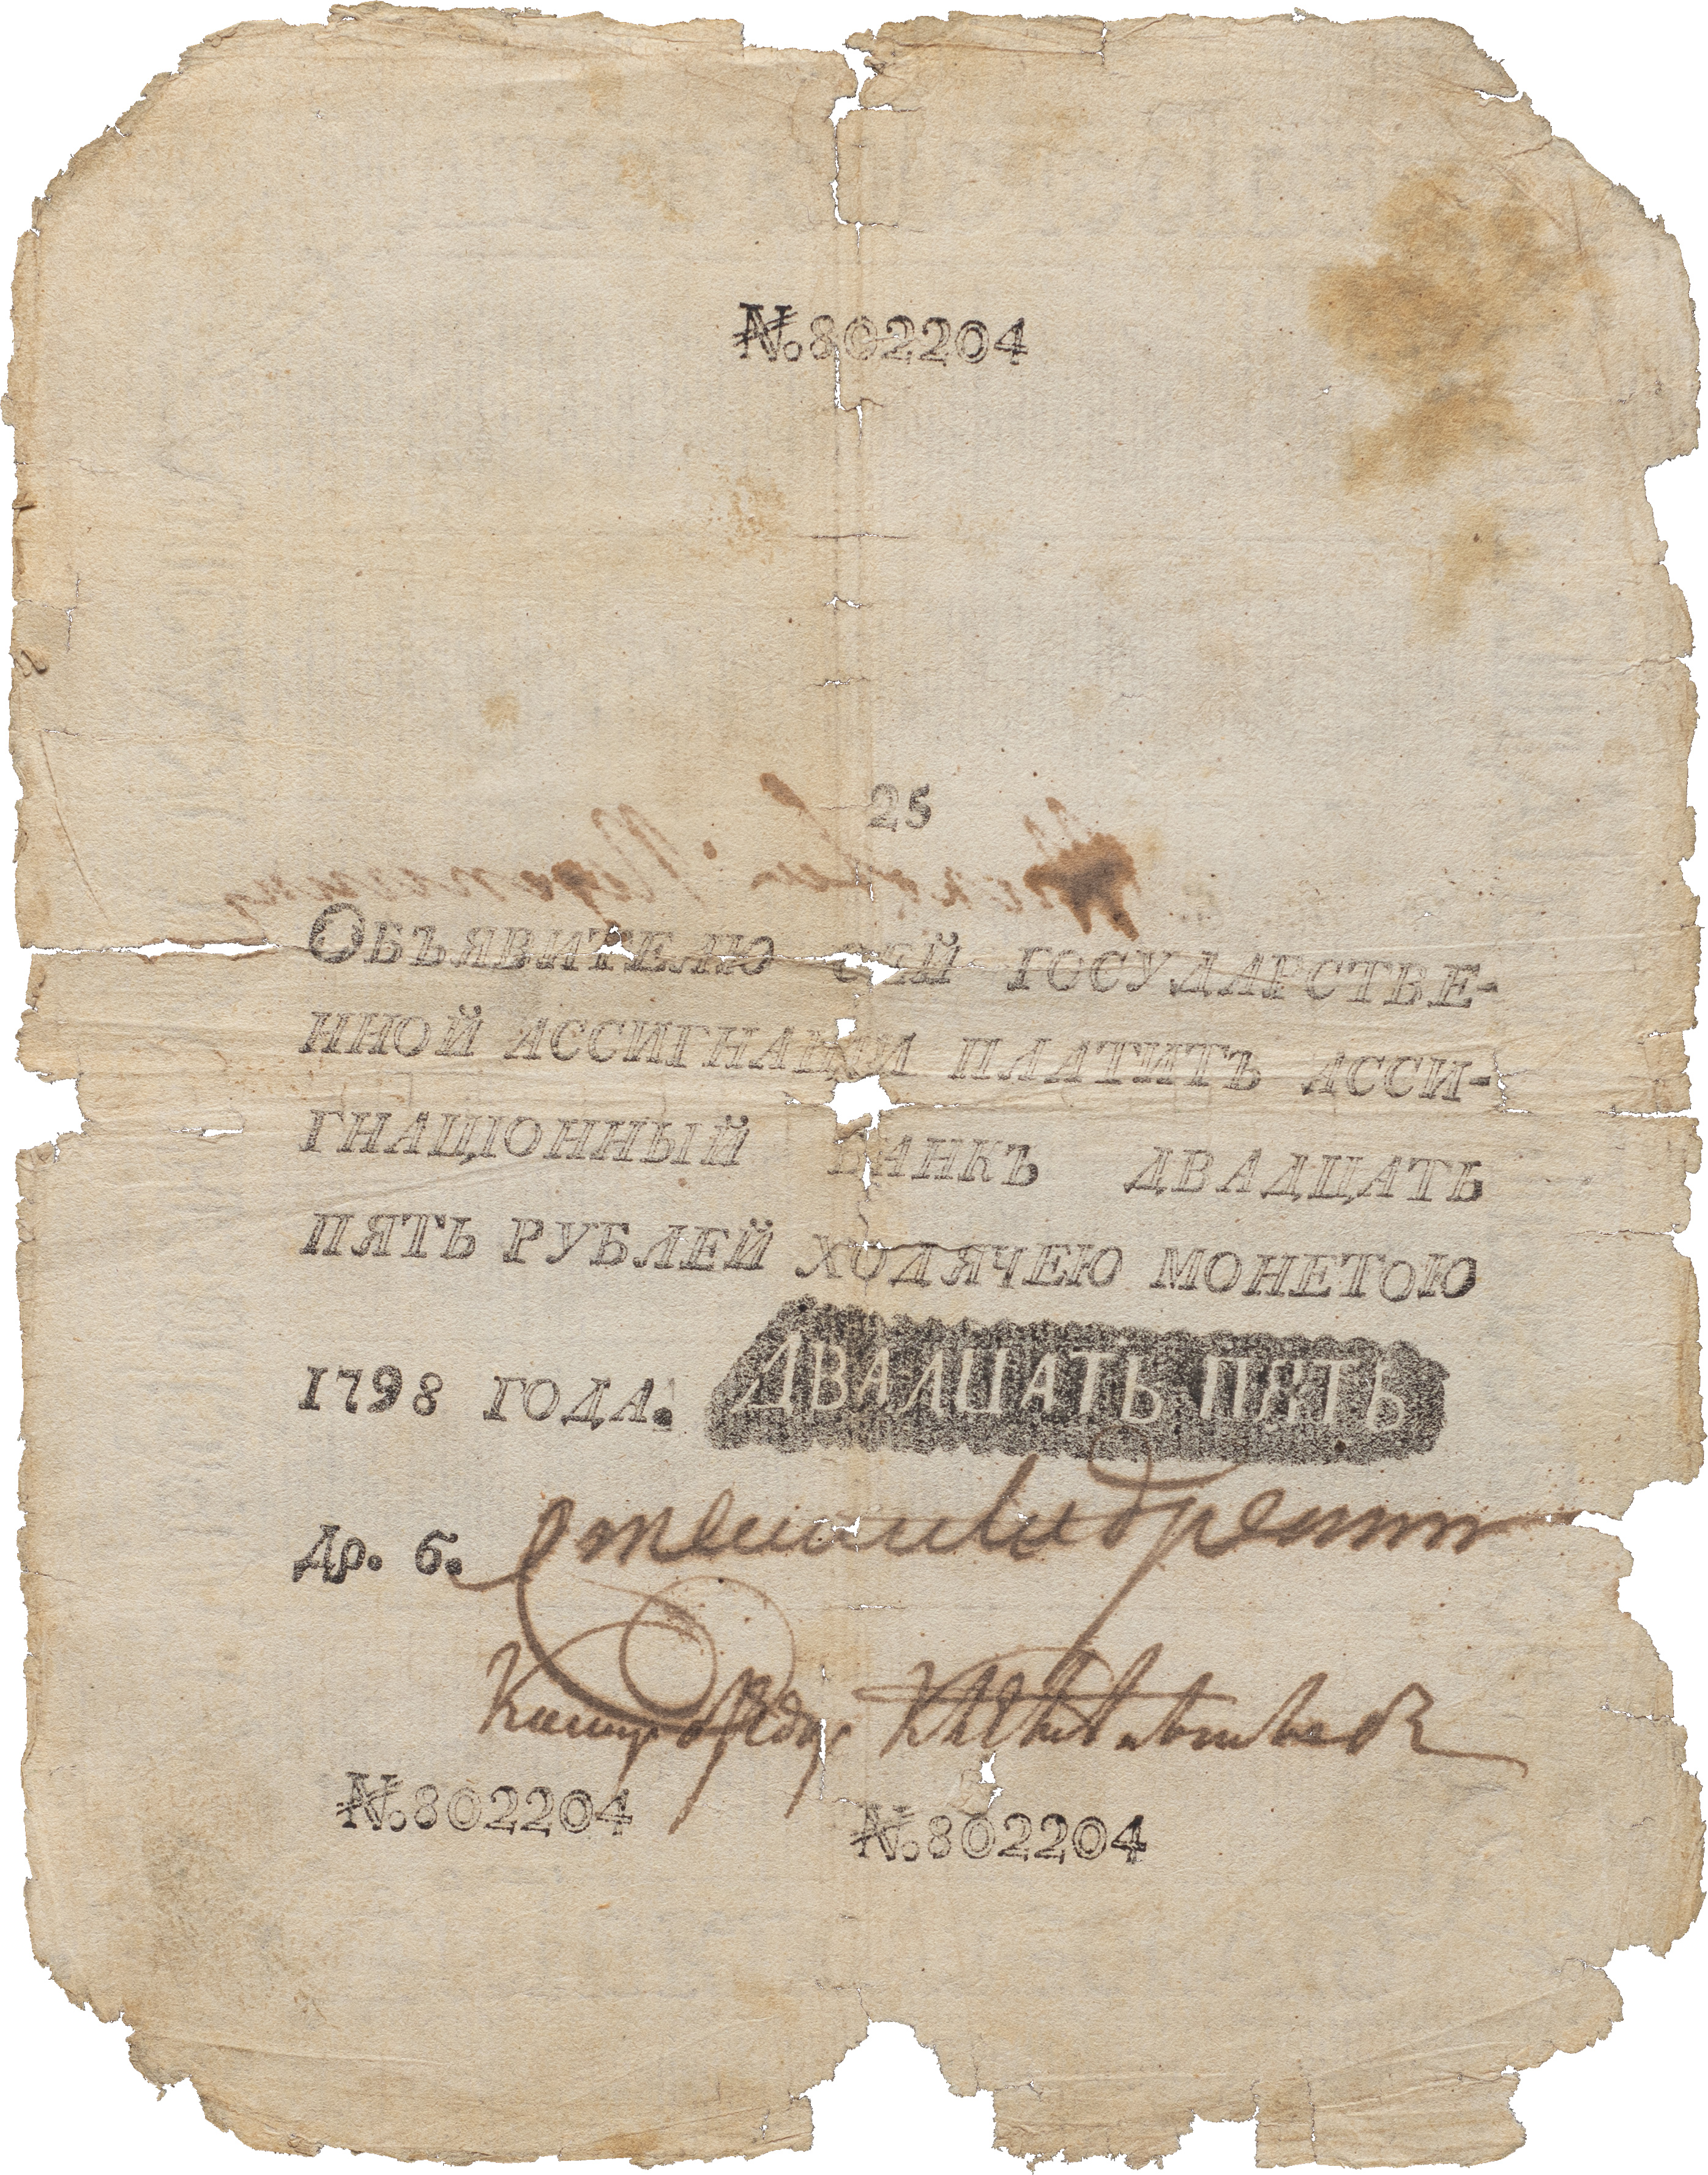 №.802204
25
ОБЪЯВИТЕЛЮ СЕЙ ГОСУДАРСТВЕ-
ННОЙ АССИГНАЦИИ ПЛАТИТЪ АССИ-
ГНАЦІОННЫЙ БАНКЪ ДВАДЦАТЬ
ПЯТЬ РУБЛЕЙ ХОДЯЧЕЮ МОНЕТОЮ
1798 ГОДА. ДВАДЦАТЬ ПЯТЬ
Др. б.
№.802204 №.802204